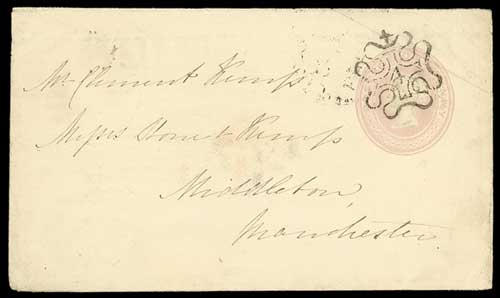 Mr Clement Kemp
Messrs Stone & Kemp
Middleton,
Manchester.
4